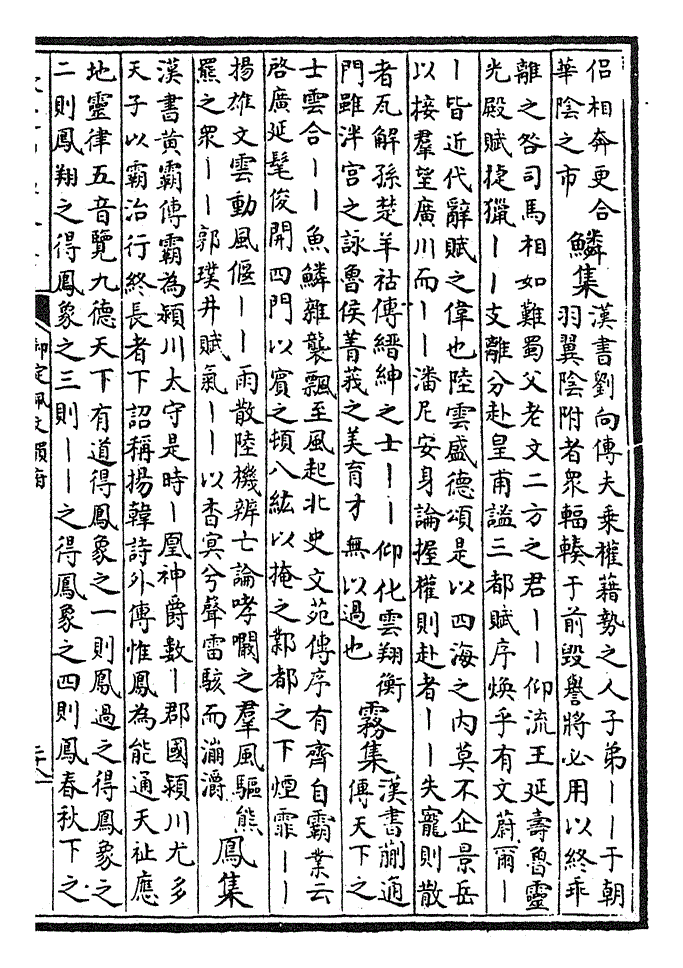 侶相奔更合
華陰之市
鱗集
漢書劉向傳夫乗權藉勢之人子弟丨丨于朝
羽翼陰附者衆輻輳于前毁譽將必用以終乖
離之咎司馬相如難蜀父老文二方之君丨丨仰流王延壽魯靈
光殿賦捷獵丨丨支離分赴皇甫謐三都賦序煥乎有文蔚爾丨
丨皆近代辭賦之偉也陸雲盛德頌是以四海之内莫不企景岳
以接羣望廣川而丨丨潘尼安身論握權則赴者丨丨失寵則散
者瓦解孫楚羊祜傳縉紳之士丨丨仰化雲翔衡
門雖泮宮之詠魯侯菁莪之美育才無以過也
霧集
漢書蒯通
傳天下之
士雲合丨丨魚鱗雜襲飄至風起北史文苑傳序有齊自霸業云
啓廣延髦俊開四門以賓之頓八紘以掩之鄴都之下煙霏丨丨
揚雄文雲動風偃丨丨雨散陸機辨亡論哮㘚之羣風驅熊
羆之衆丨丨郭璞井賦氣丨丨以杳冥兮聲雷駭而㴙灂
鳳集
漢書黄霸傳霸為潁川太守是時丨凰神爵數丨郡國潁川尤多
天子以霸治行終長者下詔稱揚韓詩外傳惟鳳為能通天祉應
地靈律五音覽九德天下有道得鳳象之一則鳳過之得鳳象之
二則鳳翔之得鳳象之三則丨丨之得鳳象之四則鳳春秋下之
御定佩文韻府